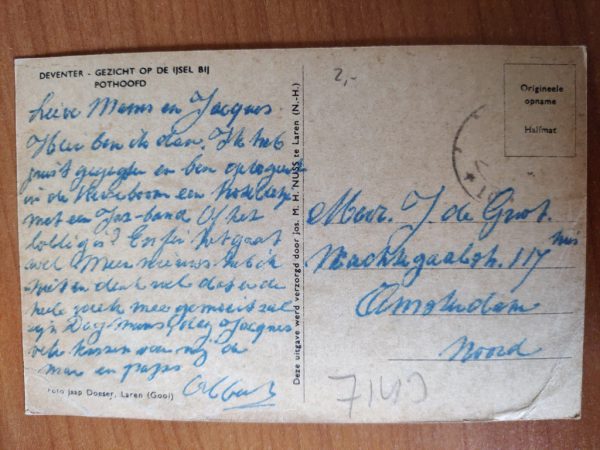 DEVENTER - GEZICHT OP DE IJSEL BIJ
POTHOOFD
Lieve Mams en Jacques
Hier ben ik dan. Ik heb
juist gegeten en ben
in de een
met een Jaz-band Of het
lollig is? Enfin het gaat
wel Meer nieuws heb ik
niet en denk wel dat
hele
zijn Dag mams, dag Jacques
vele kussen van mij de
en paps
Albert
Foto Jaap Doeser, Laren (Gooi)
Deze uitgave werd verzorgd door Jos. M. H. NUSS te Laren (N.-H.)
2,-
Origineele
opname
Halfmat
Mevr. J. de Groot.
Nachtegaalstr. 117 huis
Amsterdam
Noord